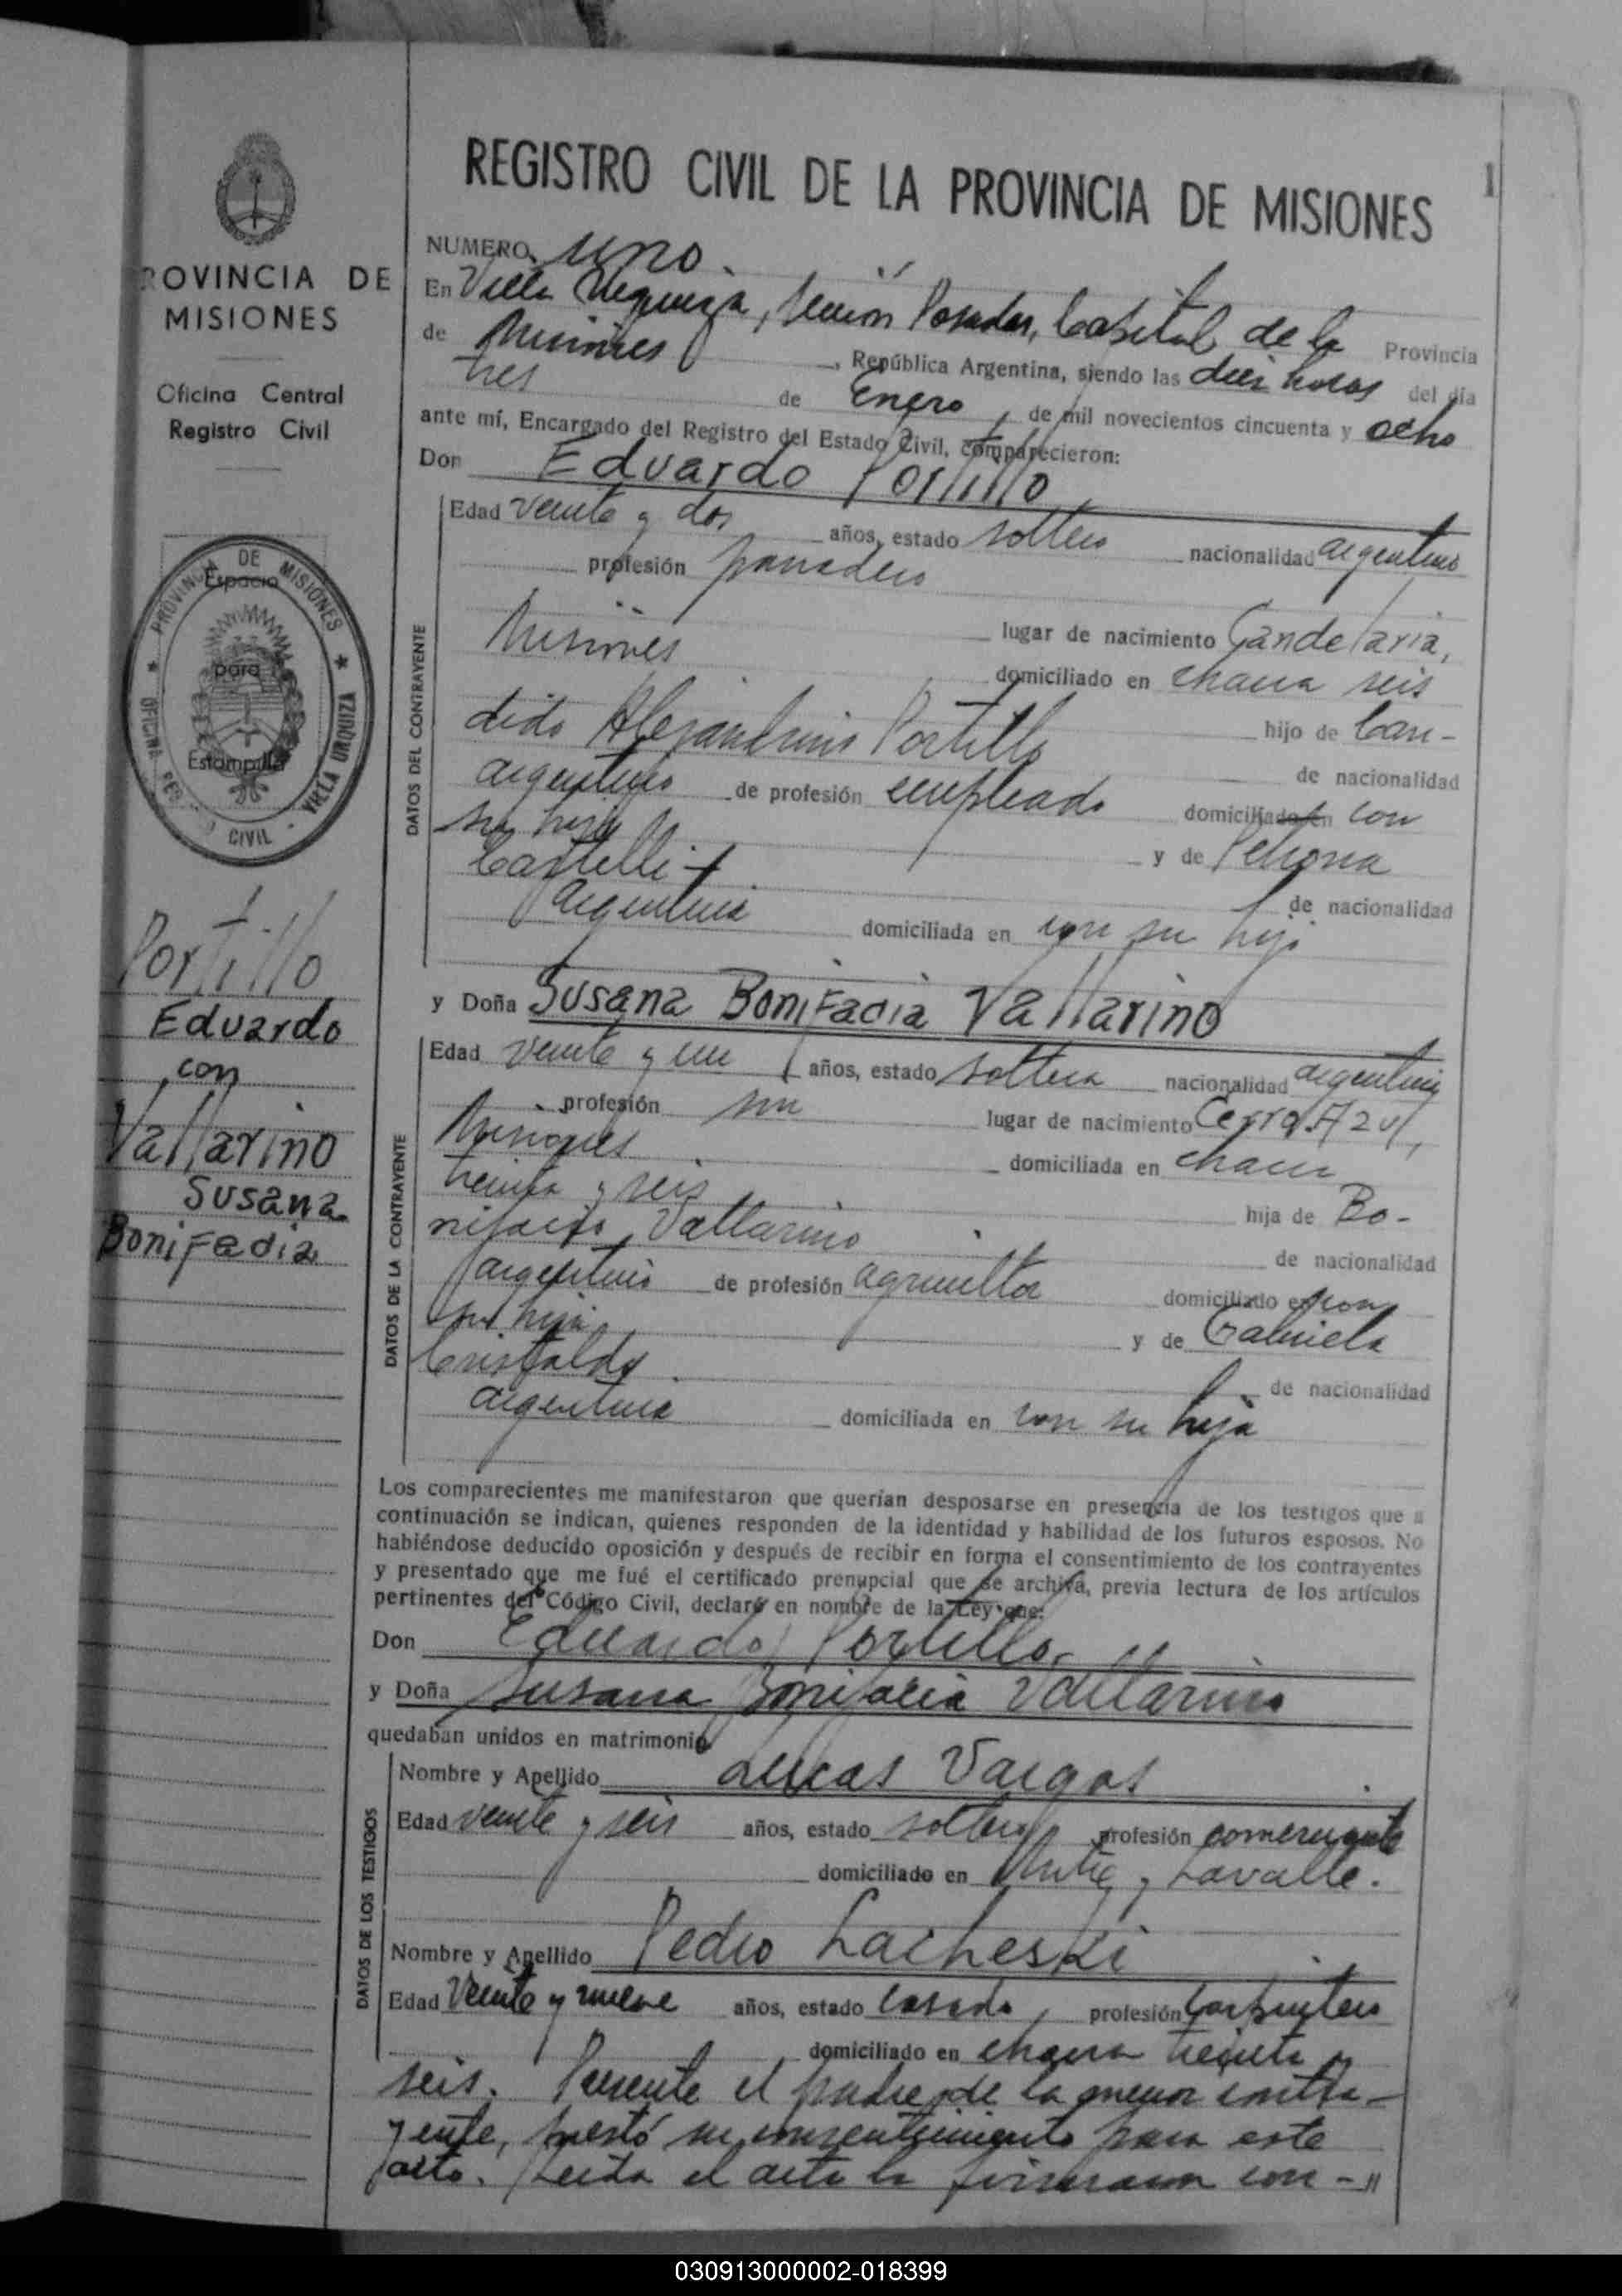 REGISTRO CIVIL DE LA PROVINCIA DE MISIONES
1
ROVINCIA DE
MISIONES
Oficina Central
Registro Civil
PROVINCIA DE MISIONES
Espacio
para
Estampilla
OFICINA REG. CIVIL - VILLA URQUIZA
Portillo
Eduardo
con
Vallarino
Susana
Bonifacia
NUMERO uno
En Villa Urquiza, Sección Posadas, Capital de la Provincia
de Misiones, República Argentina, siendo las diez horas del día
tres de Enero, de mil novecientos cincuenta y ocho
ante mí, Encargado del Registro del Estado Civil, comparecieron:
Don Eduardo Portillo
DATOS DEL CONTRAYENTE
Edad veinte y dos años, estado soltero nacionalidad argentino
profesión panadero
lugar de nacimiento Candelaria,
Misiones domiciliado en chacra seis
hijo de Can-
dido Alejandrino Portillo de nacionalidad
argentino de profesión empleado domiciliado en con
su hijo y de Petrona
Castelli de nacionalidad
argentina domiciliada en con su hijo
y Doña Susana Bonifacia Vallarino
DATOS DE LA CONTRAYENTE
Edad veinte y un años, estado soltera nacionalidad argentina
profesión sin lugar de nacimiento Cerro Azul,
Misiones domiciliada en chacra
treinta y seis hija de Bo-
nifacio Vallarino de nacionalidad
argentino de profesión agricultor domiciliado en con
su hija y de Gabriela
Cristaldo de nacionalidad
argentina domiciliada en con su hija
Los comparecientes me manifestaron que querían desposarse en presencia de los testigos que a
continuación se indican, quienes responden de la identidad y habilidad de los futuros esposos. No
habiéndose deducido oposición y después de recibir en forma el consentimiento de los contrayentes
y presentado que me fué el certificado prenupcial que se archiva, previa lectura de los artículos
pertinentes del Código Civil, declaro en nombre de la Ley que:
Don Eduardo Portillo
y Doña Susana Bonifacia Vallarino
quedaban unidos en matrimonio
DATOS DE LOS TESTIGOS
Nombre y Apellido Lucas Vargas
Edad veinte y seis años, estado soltero profesión comerciante
domiciliado en Mitre y Lavalle.
Nombre y Apellido Pedro Lacheski
Edad veinte y nueve años, estado casado, profesión carpintero
domiciliado en chacra treinta y
seis. Presente el padre de la menor contra-
yente, prestó su consentimiento para este
acto. Leida el acta la firmaron con-"
030913000002-018399